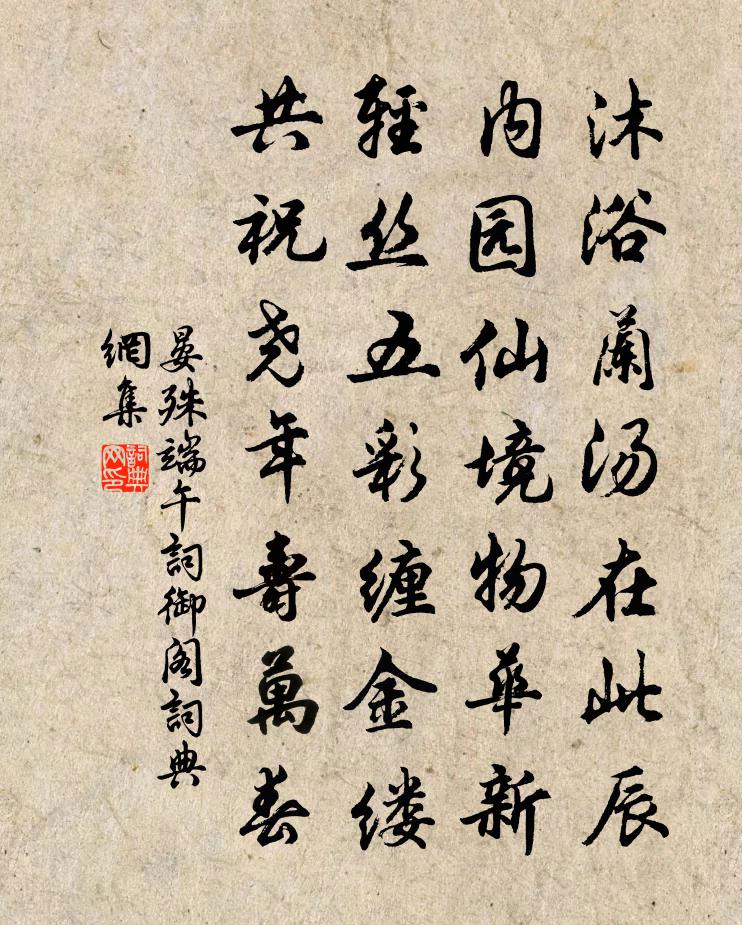 沐浴蘭湯在此辰
内园仙境物華新
輕丝五彩缠金缕
共祝尧年壽萬春
晏殊端午詞御阁詞典
網集
詞典
网印